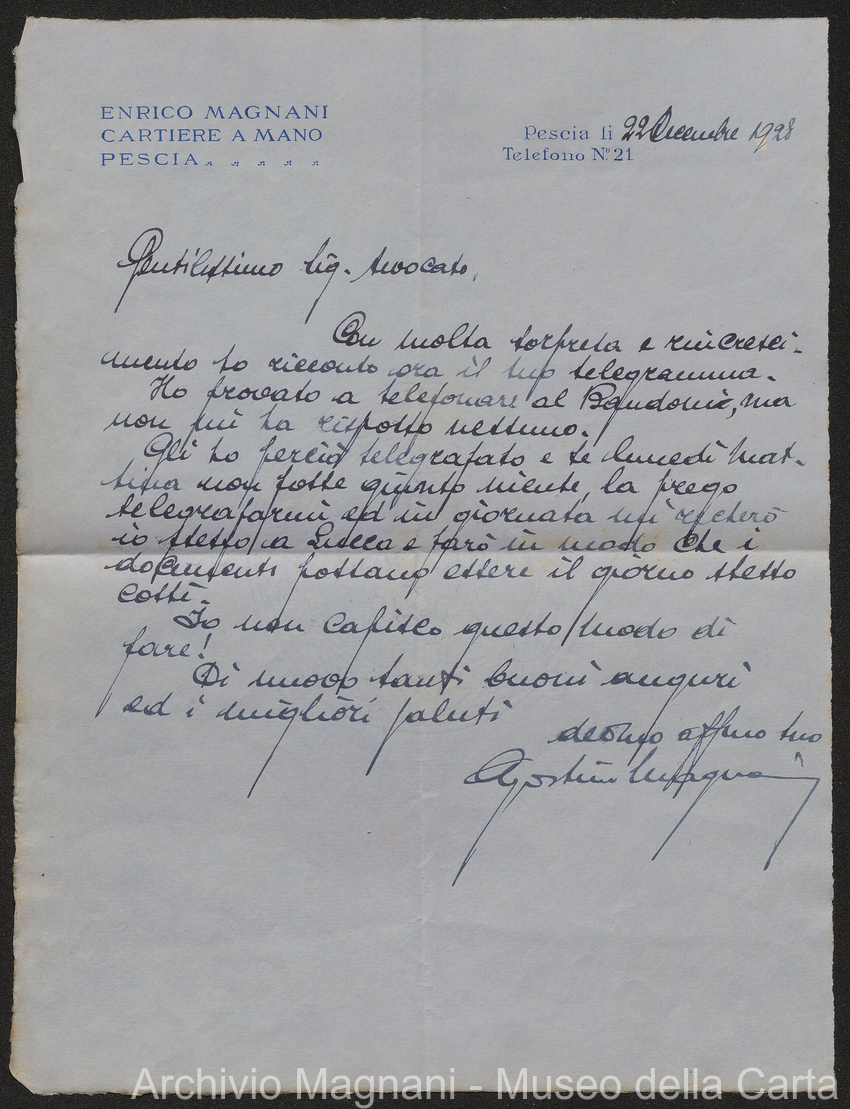 ENRICO MAGNANI
CARTIERE A MANO
PESCIA
Pescia li 22 Decembre 1928
Telefono N.º 21
Gentilissimo Sig. Avvocato,
Con molta sorpresa e rincresci-
mento ho ricevuto ora il suo telegramma.
Ho provato a telefonare al Bandoni, ma
non mi ha risposto nessuno.
Gli ho perciò telegrafato e se lunedì mat-
tina non fosse giunto niente, la prego
telegrafarmi ed in giornata mi recherò
io stesso a Lucca e farò in modo che i
documenti possano essere il giorno stesso
costì.
Io non capisco questo modo di
fare!
Di nuovo tanti buoni auguri
ed i migliori saluti
devmo affmo suo
Agostino Magnani
Archivio Magnani - Museo della Carta